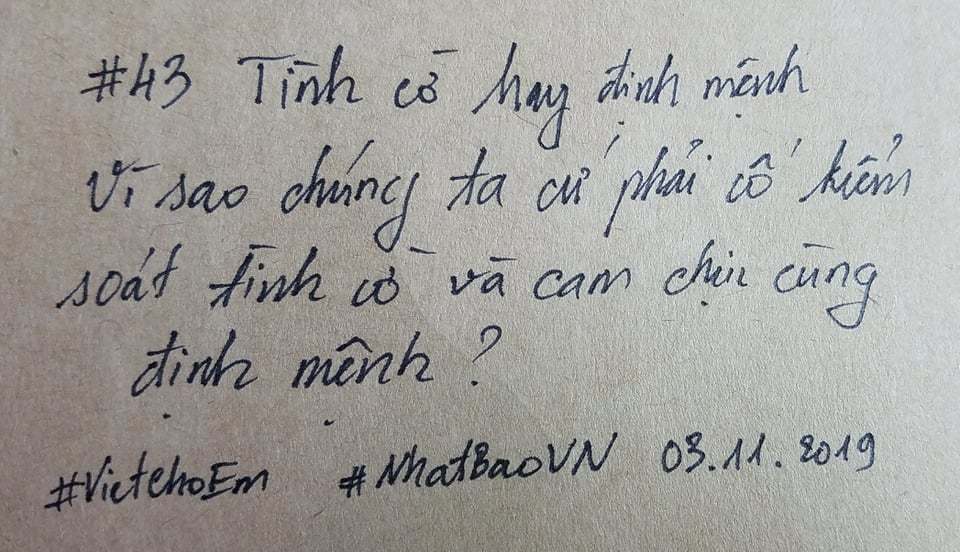 #43 Tình cờ hay định mệnh
Vì sao chúng ta cứ phải cố kiểm
soát tình cờ và cam chịu cùng
định mệnh?
#VietchoEm #NhatBaoVN 03.11.2019